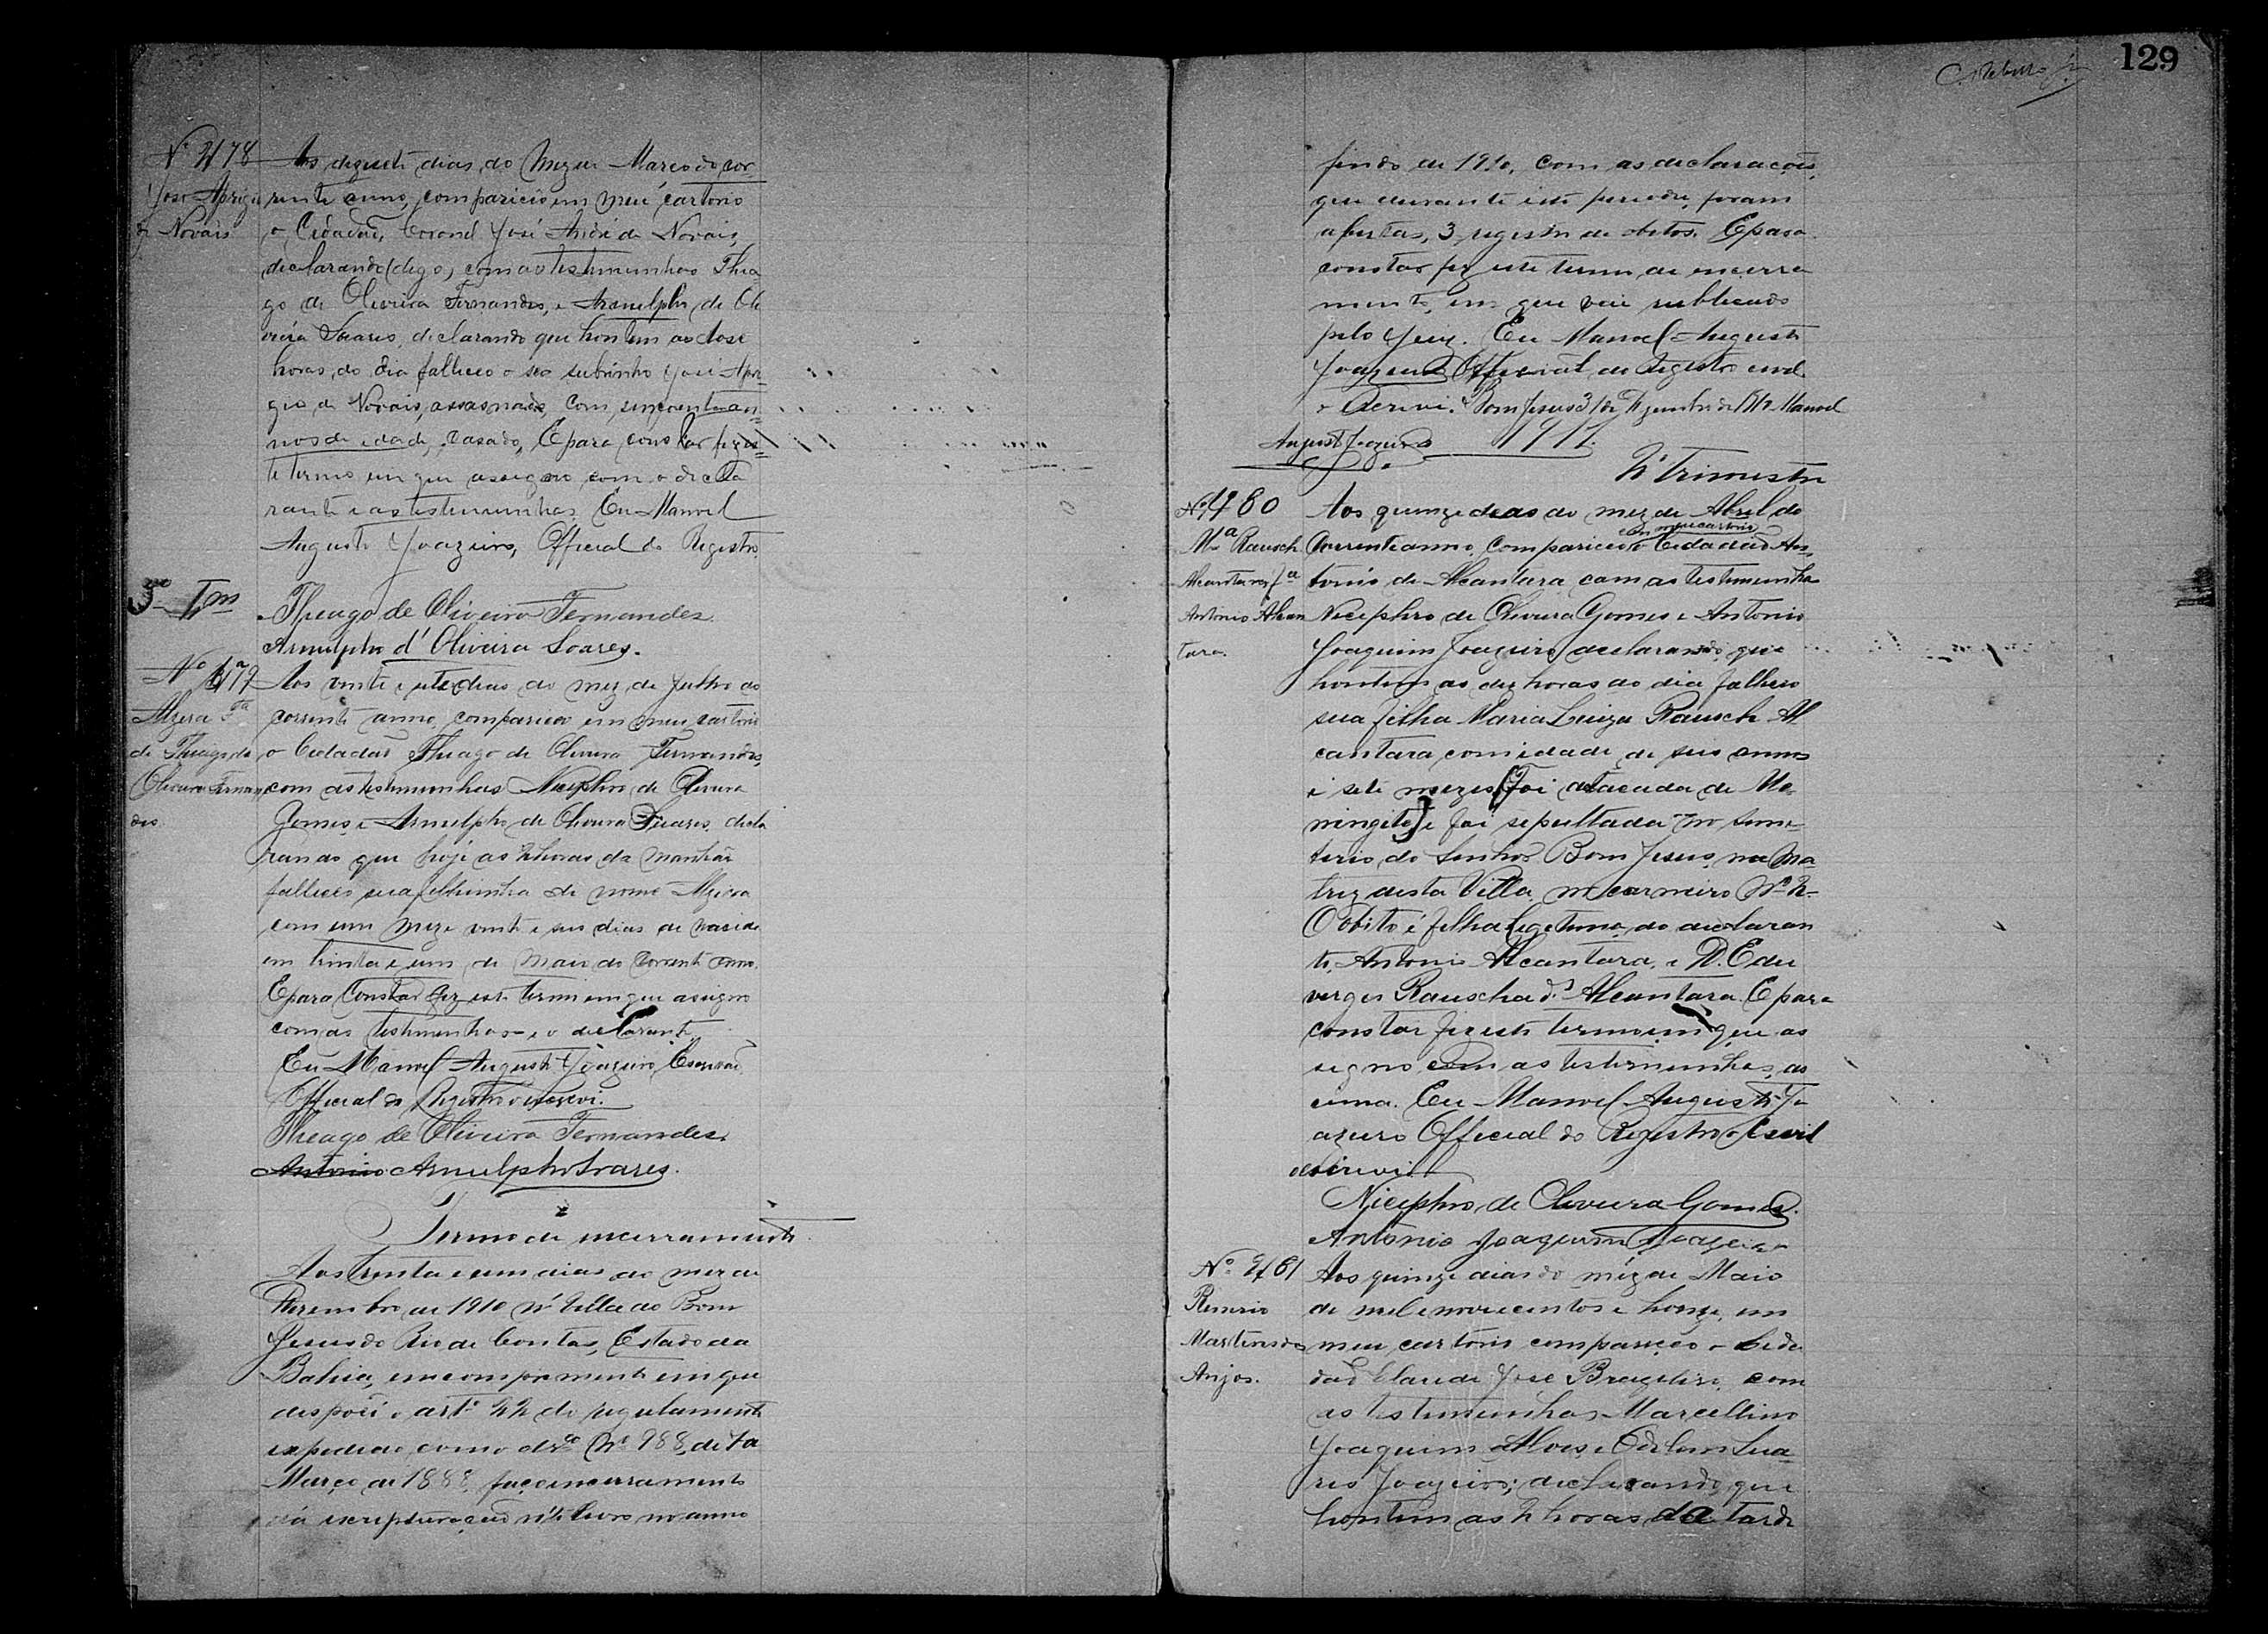 Nº 478
José Aprigio
de Novais
Aos dezesete dias do mez de Março do cor-
rente anno, compareceo em meu cartorio
o Cidadaõ, Coronel José André de Novais,
declarando (digo) com as testimunhas Thia
go de Oliveira Fernandes, e Arnulpho de Oli
veira Soares, declarando que hontem as dose
horas do dia falleceo o seo subrinho José Apri-
gio de Novais, assasinado, com sincoenta an-
nos de idade, casado, E para constar fiz es-
te termo em que assigno com o decla
rante e as testimunhas. Eu Manoel
Augusto Joazeiro, Official do Registro
Thiago de Oliveira Fernandes.
Arnulpho d'Oliveira Soares.
Nº 479
Alzira Fª
de Thiago de
Oliveira Fernan
des
Aos vinte e sete dias do mez de Julho do
corrente anno, compareceo em meu cartorio
o Cidadaõ Thiago de Oliveira Fernandes,
com as testimunhas Nicephro de Oliveira
Gomes e Arnulpho de Oliveira Soares, decla
rando que hoje as horas da manhã
falleceo sua filhinha de nome Alzira
com um mez e vinte e seis dias de nacida
em trinta e um de Maio do corrente anno.
E para constar fiz este termo em que assigno
com as testimunhas e o declarante.
Eu Manoel Augusto Joazeiro, Escrivaõ
Official do Registro o escrevi.
Thiago de Oliveira Fernandes.
Antonio Arnulpho Soares.
Termo de encerramento
Aos trinta e um dias do mez de
Dezembro de 1910 n'Villa do Bom
Jesus do Rio de Contas, Estado da
Bahia, em comprimento em que
despoẽ o artº do regulamento
expedido como Nº 988, de
Março de 1888 faço encerramento
da escripturaçaõ n'este livro no anno
129
findo de 1910, com as declaracoẽs,
que durante este periodo, foram
abertas, 3 registro de obitos. E para
constar fiz este termo de encerra
mento, em que vai rubricado
pelo Juiz. Eu Manoel Augusto
Joazeiro Official do Registro civil
o escrevi. Bom Jesus 31 de Dezembro de Manoel
Augusto Joazeiro
1911.
Trimestre
Nº 480
Mª Rausch
Alcantara fª
Antonio Alcan
tara.
Aos quinze dias do mez de Abril do
em meu cartorio
corrente anno, compareceo o Cidadaõ An-
tonio de Alcantara com as testimunhas
Nicephro de Oliveira Gomes e Antonio
Joaquim Joazeiro declarando, que
hontem as dez horas do dia falleceo
sua filha Maria Luiza Rausch Al
cantara, com idade de seis annos
e sete mezes (foi atacada de Me
ningite) e foi sepultada no seme-
terio do Senhor Bom Jesus, na Ma
triz desta Villa, no carneiro Nº
O obito é filha legetima do declaran
te, Antonio Alcantara, e D. Edu
verges Rauscha d' Alcantara. E para
constar fiz este termo em que as
segno com as testimunhas as
cima. Eu Manoel Augusto Jo
azeiro Official do Registro Civil
escrevi.
Nicephro de Oliveira Gomes.
Antonio Joaquim Joazeiro
Nº 481
Martins dos
Anjos.
Aos quinze dias do mêz de Maio
de mil e novecentos e honze, em
meu cartorio compareceo o Cida
daõ Claudi José Brazilino, com
as testimunhas Marcellino
Joaquim Alves, e Edilson Sua-
res Joazeiro; declarando, que
hontem as horas da tarde